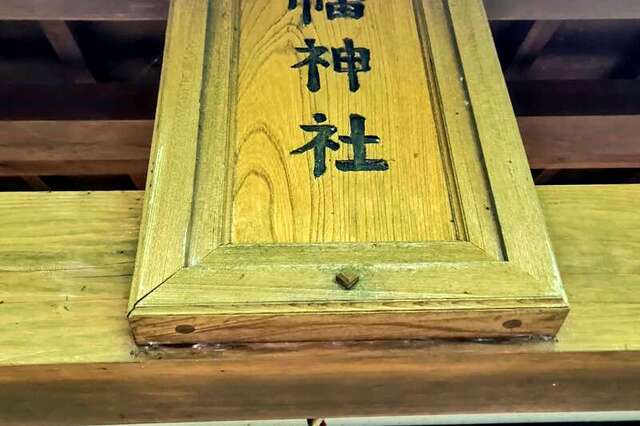 幡神社